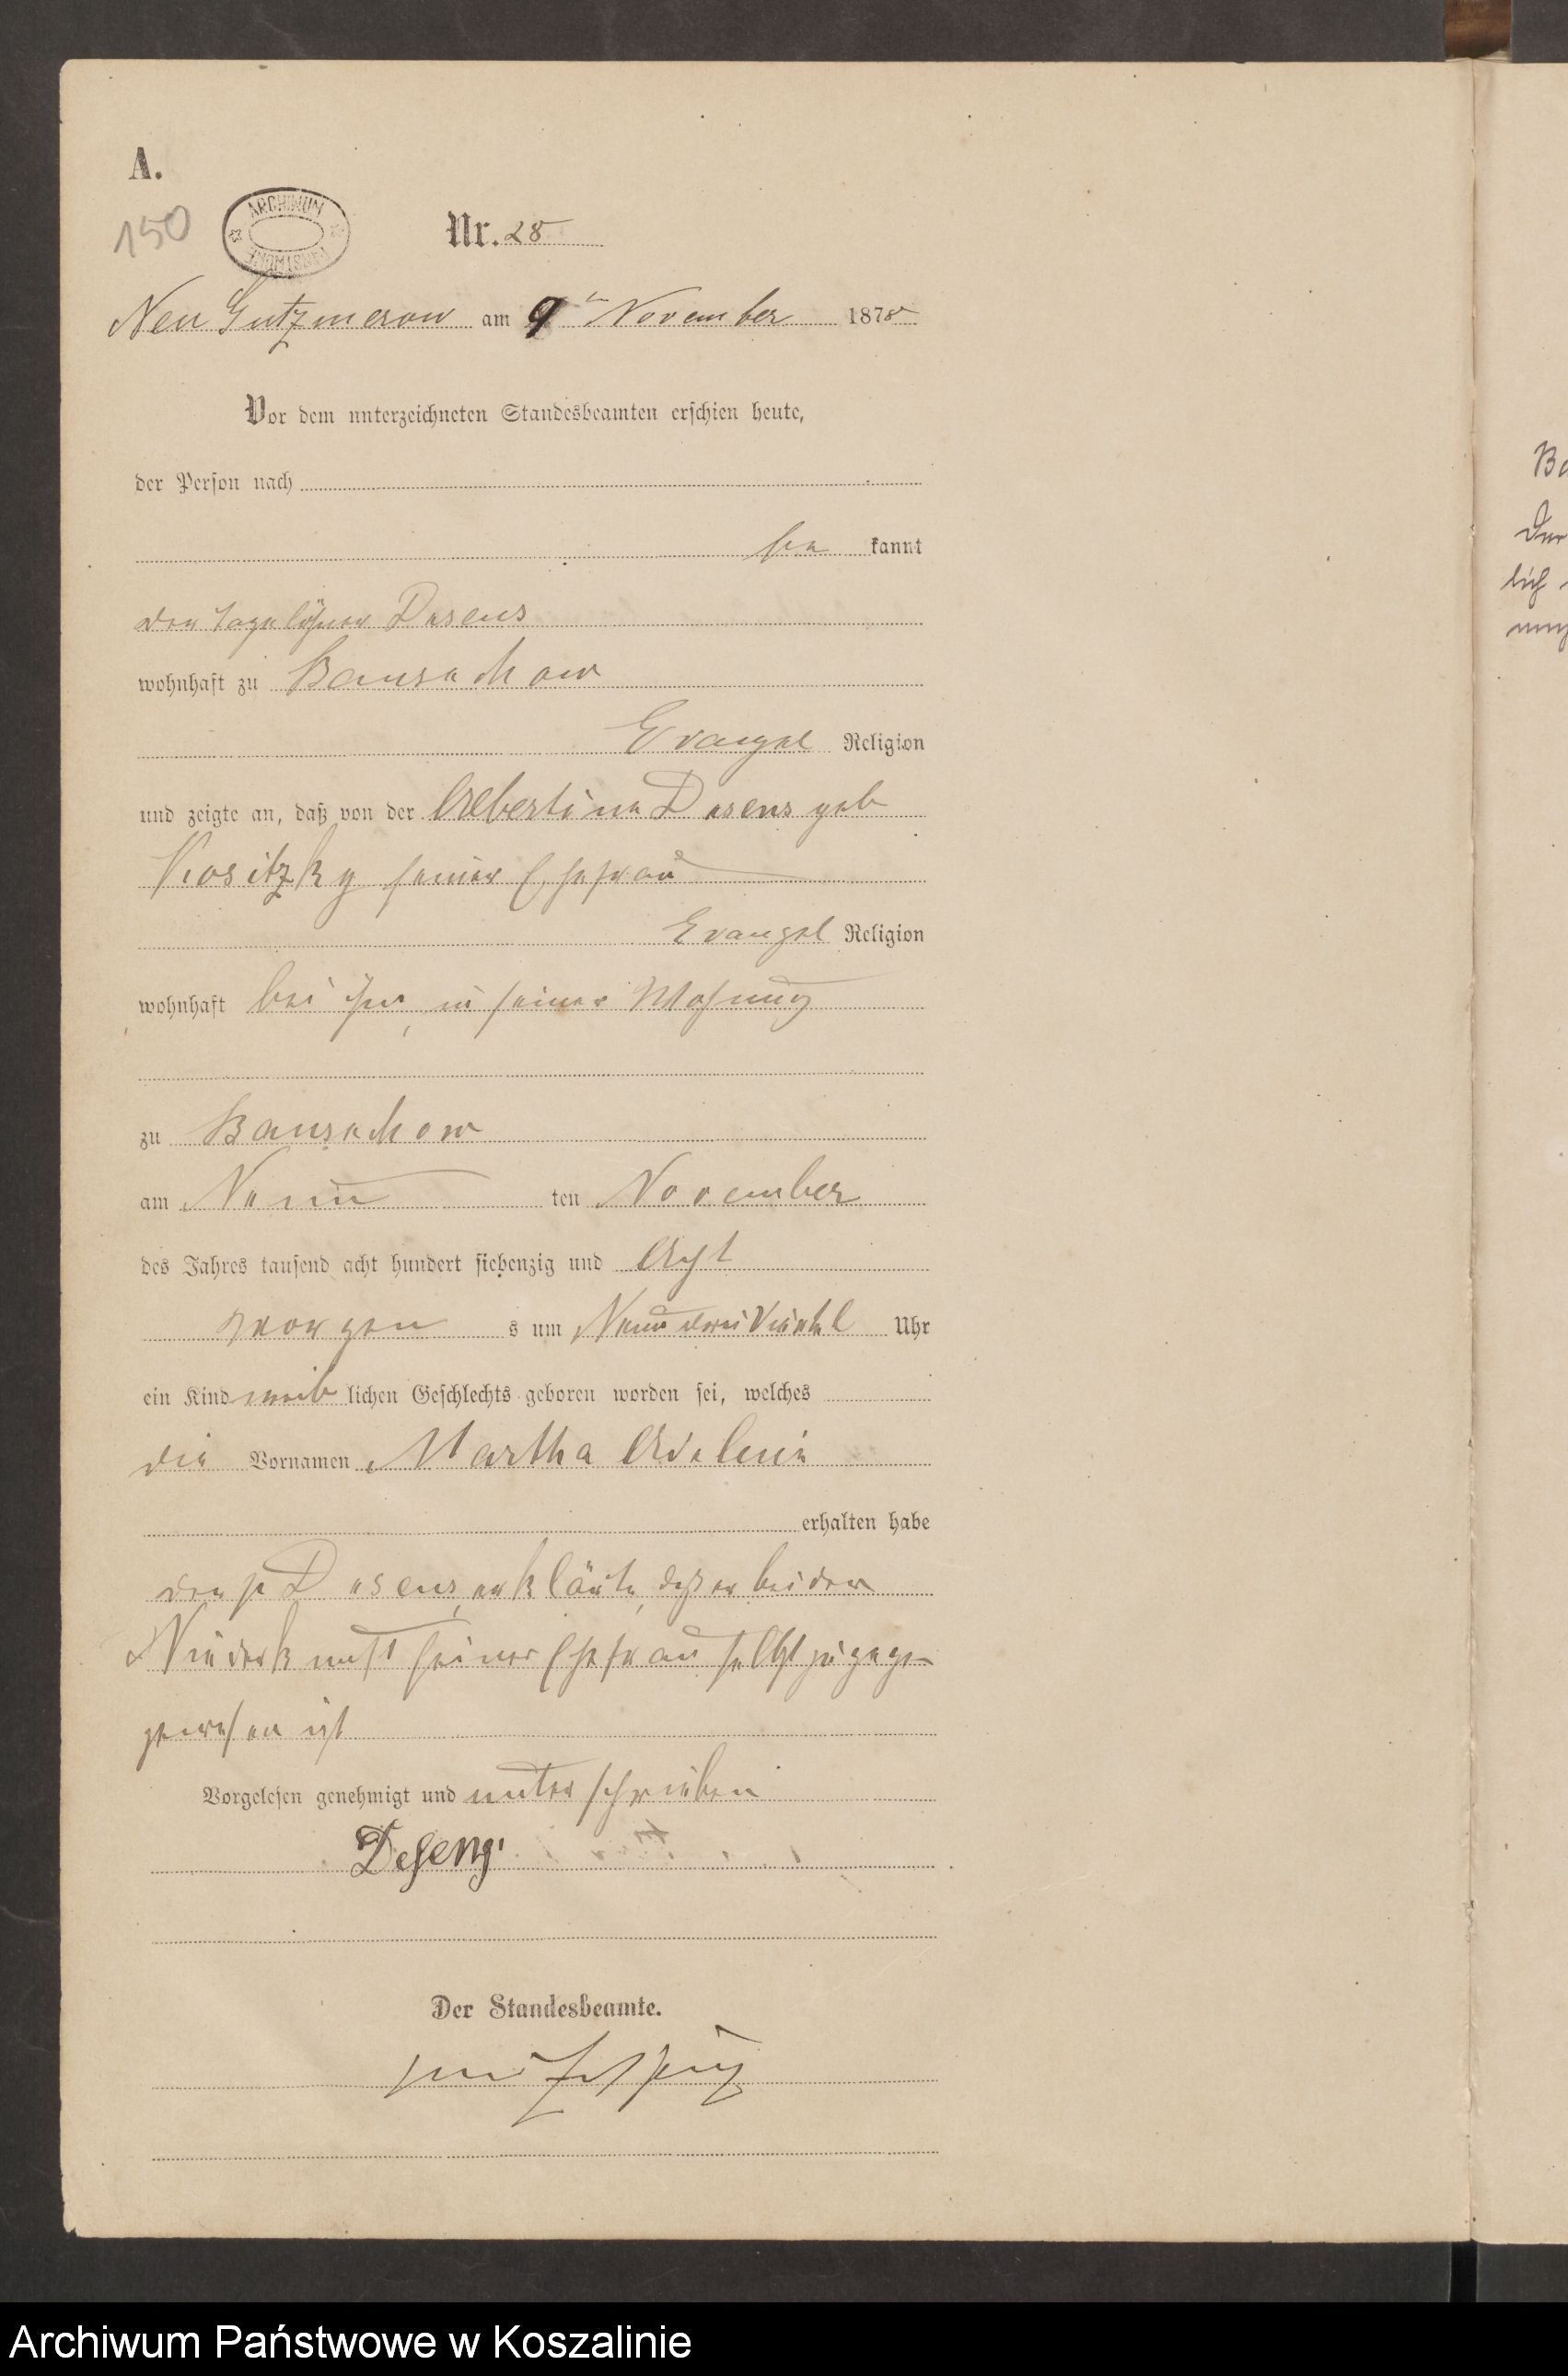 A.
150
ARCHIWUM
Nr. 28
Neu Gutzmerow am 9ten November 1878
Vor dem unterzeichneten Standesbeamten erschien heute,
der Person nach
be kannt
der Tagelöhner Desens
wohnhaft zu
Evangel Religion
und zeigte an, daß von der Albertine Desens geb
Kositzky seiner Ehefrau
Evangel Religion
wohnhaft bei ihm, in seiner Wohnung
zu
am Neun ten November
des Jahres tausend acht hundert siebenzig und Acht
morgen s um Neun drei Viertel Uhr
ein Kind weib lichen Geschlechts geboren worden sei, welches
die Vornamen Martha
erhalten habe
der p Desens, erklärte, daß er bei der
Niederkunft seiner Ehefrau selbst zugegen
gewesen ist
Vorgelesen genehmigt und unterschrieben
Desens
Der Standesbeamte.
Archiwum Państwowe w Koszalinie